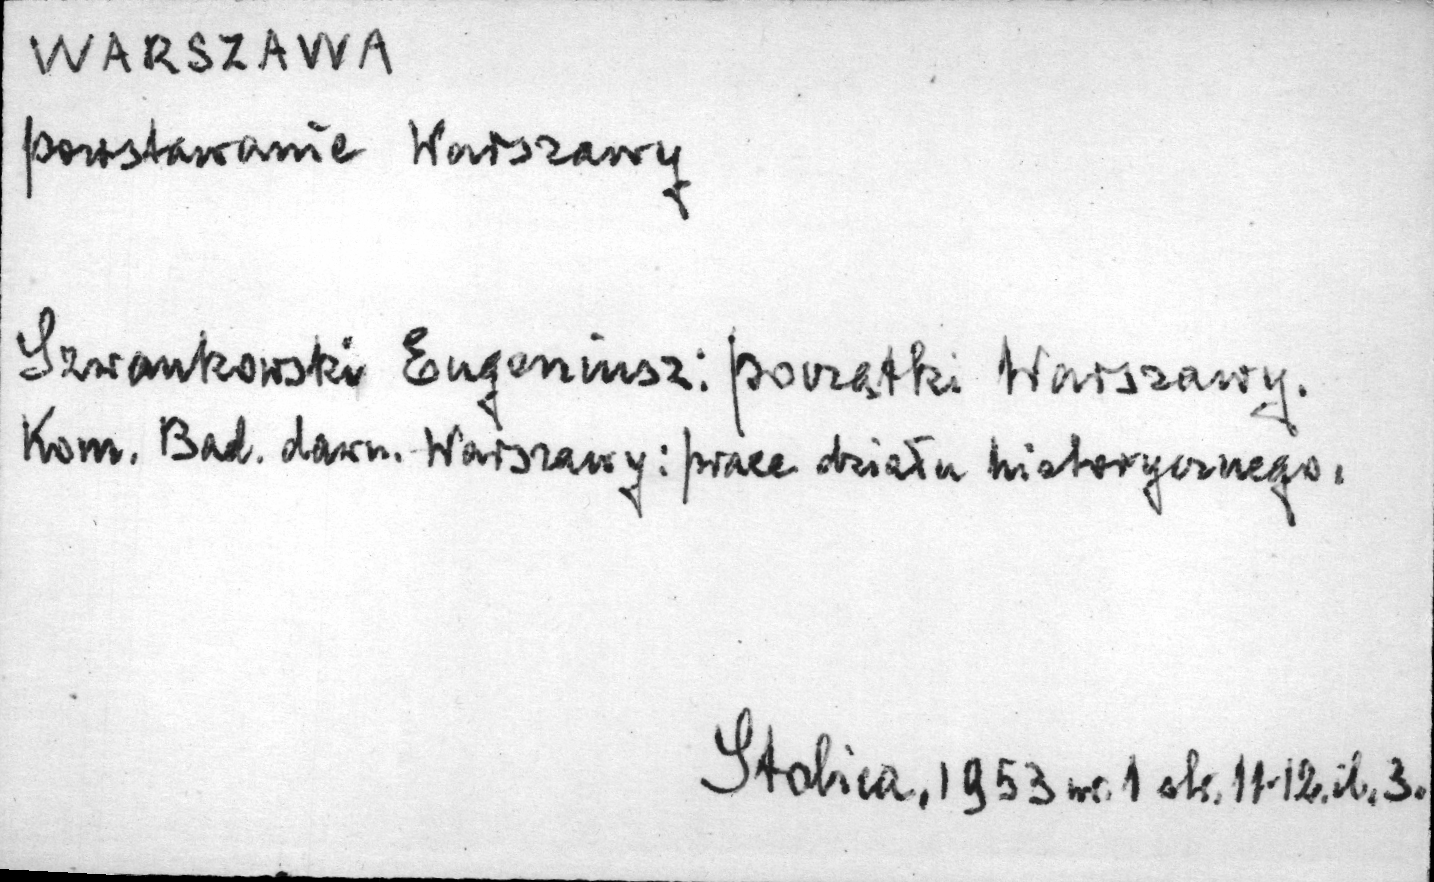 WARSZAWA
powstawanie Warszawy
Szwankowski Eugeniusz: początki Warszawy.
Kom. Bad. dawn. Warszawy: prace działu historycznego.
Stolica, 1953 nr. 1 str. 11-12. il. 3.